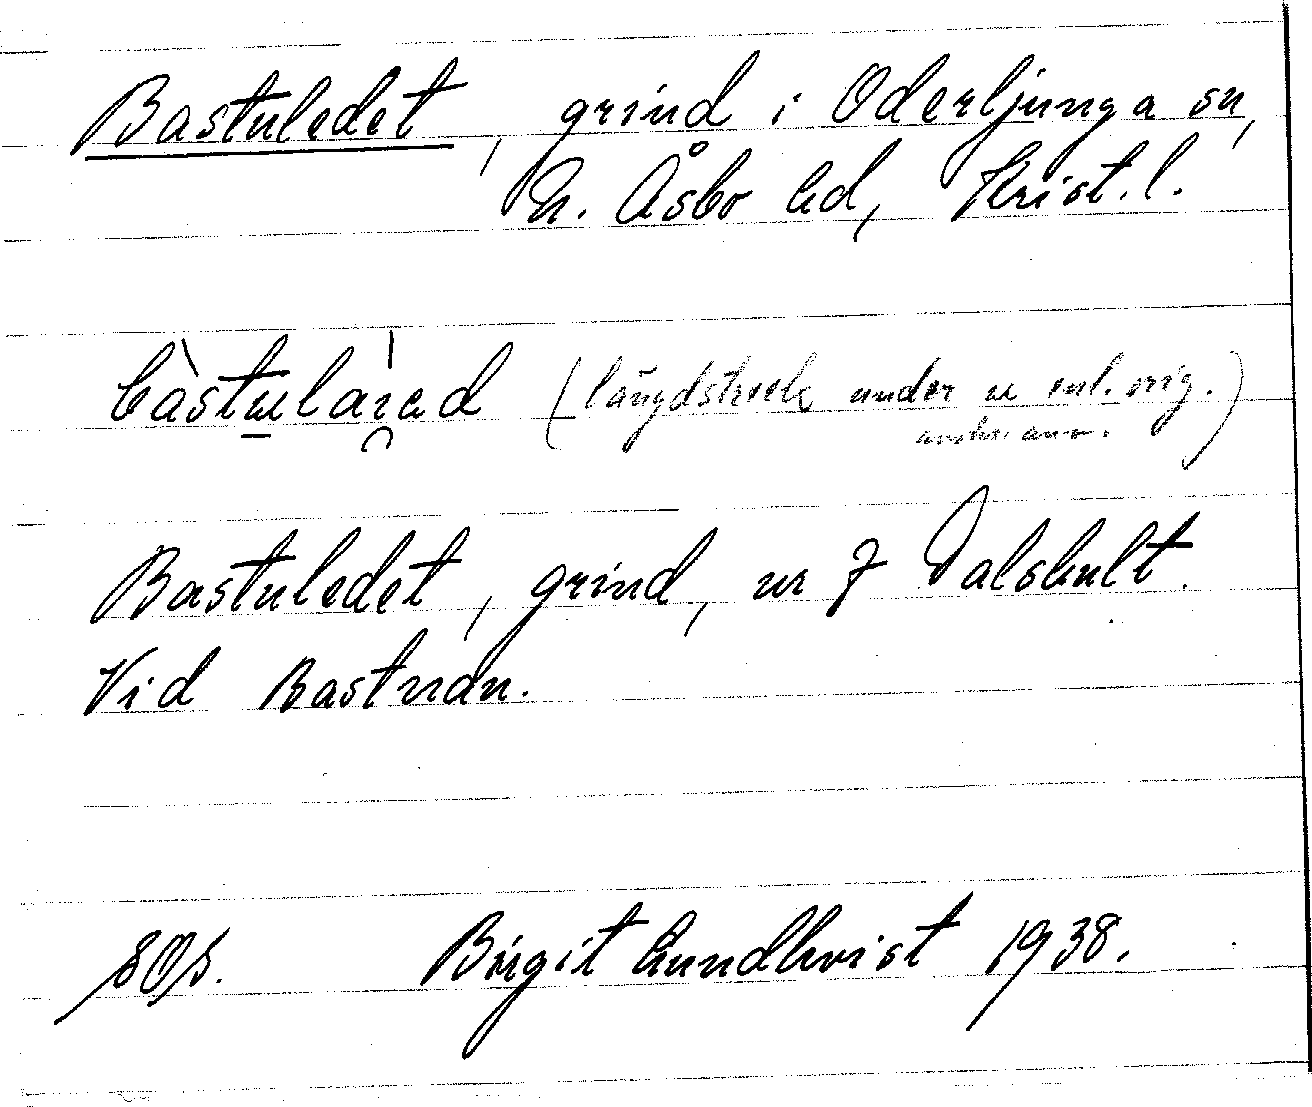 Bastuledet, grind i Oderljunga sn,
N. Åsbo hd, Krist. l.
(längdstreck under u enl. orig.
Bastuledet, grind, nr 7 Dalshult.
Vid Bastuan.
Birgit Lundkvist 1938.